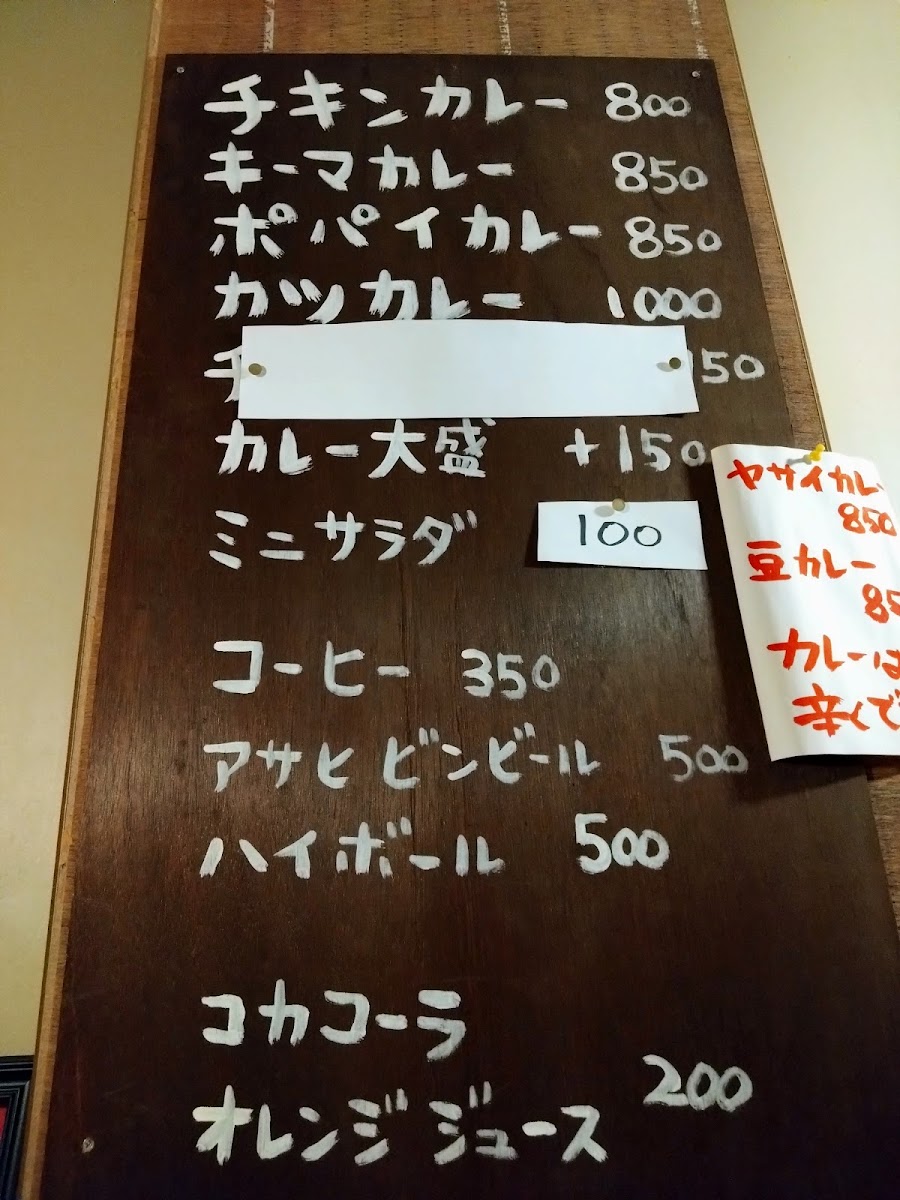 チキンカレー 800
キーマカレー 850
ポパイカレー 850
カツカレー 1000
チ 150
カレー大盛 +150
ミニサラダ 100
コーヒー 350
アサヒ ビンビール 500
ハイボール 500
コカコーラ
オレンジジュース 200
ヤサイカレー
850
豆カレー
85
カレーは
辛くで